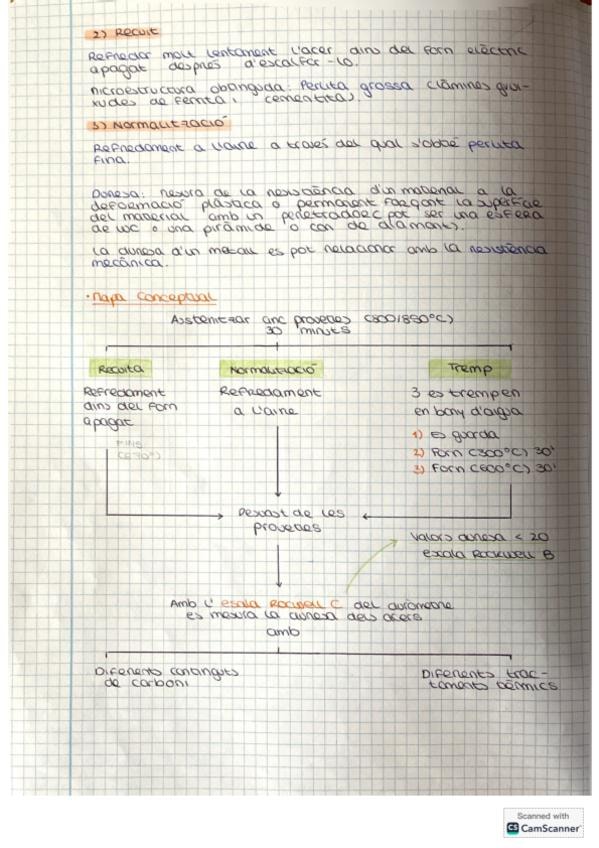 2) Recuit
Refredar molt lentament l'acer dins del forn elèctric
apagat després d'escalfar-lo.
Microestructura obtinguda: Perlita grossa (làmines grui-
xudes de ferrita i cementita).
3) Normalització
Refredament a l'aire a través del qual s'obté perlita
fina.
Duresa: mesura de la resistència d'un material a la
deformació plàstica o permanent forçant la superfície
del material amb un penetrador (pot ser una esfera
de WC o una piràmide o con de diamant).
La duresa d'un metall es pot relacionar amb la resistència
mecànica.
· Mapa Conceptual
Austenitzar cinc provetes (800/850°C)
30 minuts
Recuita
Normalització
Tremp
Refredament
dins del forn
apagat
FINS
(670°)
Refredament
a l'aire
3 es trempen
en bany d'aigua
1) Es guarda
2) Forn (300°C) 30'
3) Forn (600°C) 30'
Desbast de les
provetes
Valors duresa < 20
escala Rockwell B
Amb l'escala Rockwell C del duròmetre
es mesura la duresa dels acers
amb
Diferents continguts
de carboni
Diferents trac-
taments tèrmics
Scanned with
CS CamScanner